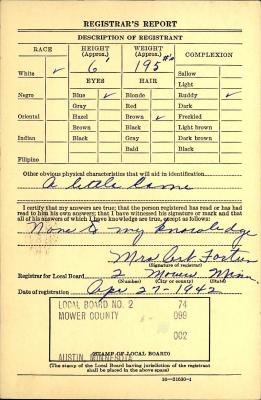 REGISTRAR'S REPORT
DESCRIPTION OF REGISTRANT
RACE HEIGHT (Approx.) WEIGHT (Approx.) COMPLEXION
6' 195 #'s
White ✓ Sallow
EYES HAIR Light
Negro Blue ✓ Blonde Ruddy ✓
Gray Red Dark
Oriental Hazel Brown ✓ Freckled
Brown Black Light brown
Indian Black Gray Dark brown
Bald Black
Filipino
Other obvious physical characteristics that will aid in identification
A little Lame
I certify that my answers are true; that the person registered has read or has had
read to him his own answers; that I have witnessed his signature or mark and that
all of his answers of which I have knowledge are true, except as follows:
None to my knowledge
Mrs Art Foster
(Signature of registrar)
Registrar for Local Board 2 Mower Minn.
(Number) (City or county) (State)
Date of registration Apr 27-1942
LOCAL BOARD NO. 2 74
MOWER COUNTY 099
002
AUSTIN, MINNESOTA
(STAMP OF LOCAL BOARD)
(The stamp of the Local Board having jurisdiction of the registrant
shall be placed in the above space)
16—21630-1